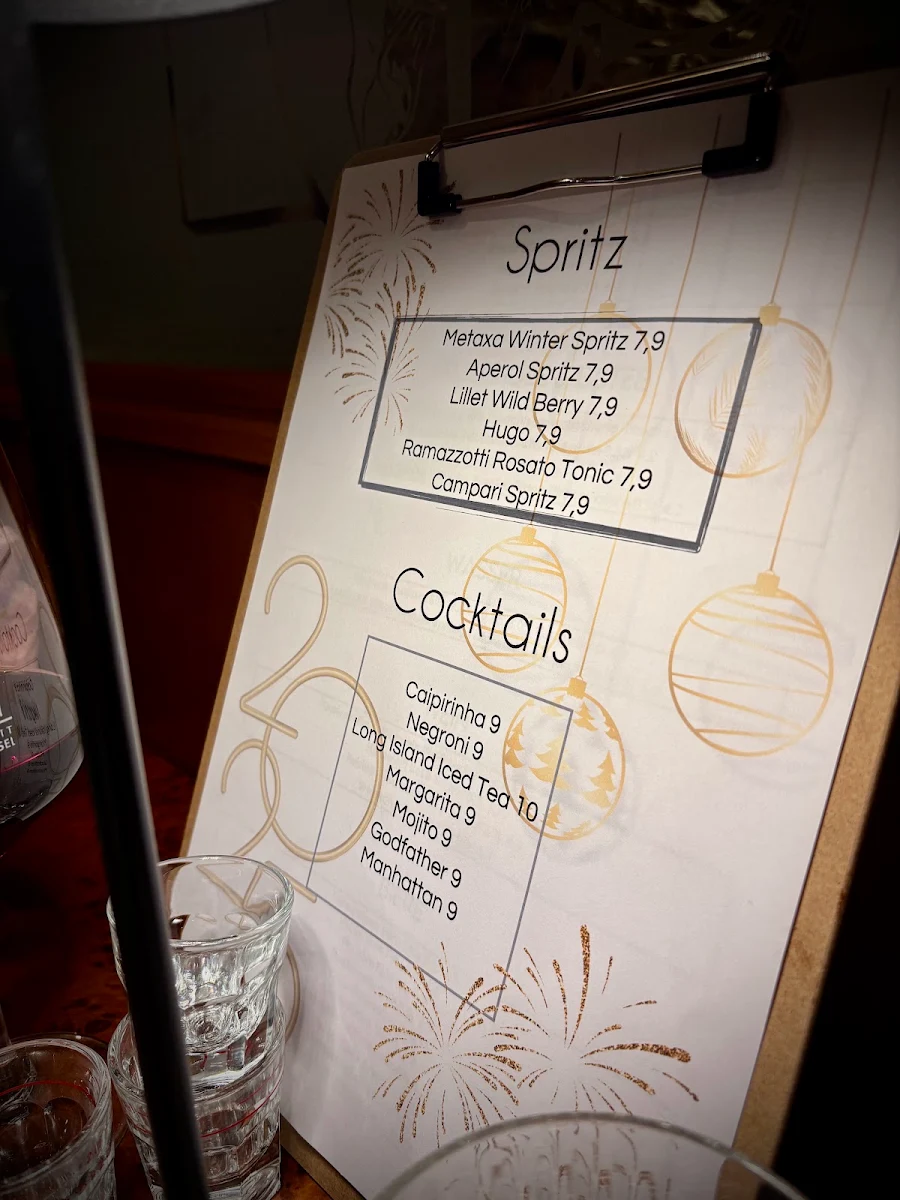 Spritz
Metaxa Winter Spritz 7,9
Aperol Spritz 7,9
Lillet Wild Berry 7,9
Hugo 7,9
Ramazzotti Rosato Tonic 7,9
Campari Spritz 7,9
Cocktails
Caipirinha 9
Negroni 9
Long Island Iced Tea 10
Margarita 9
Mojito 9
Godfather 9
Manhattan 9
20